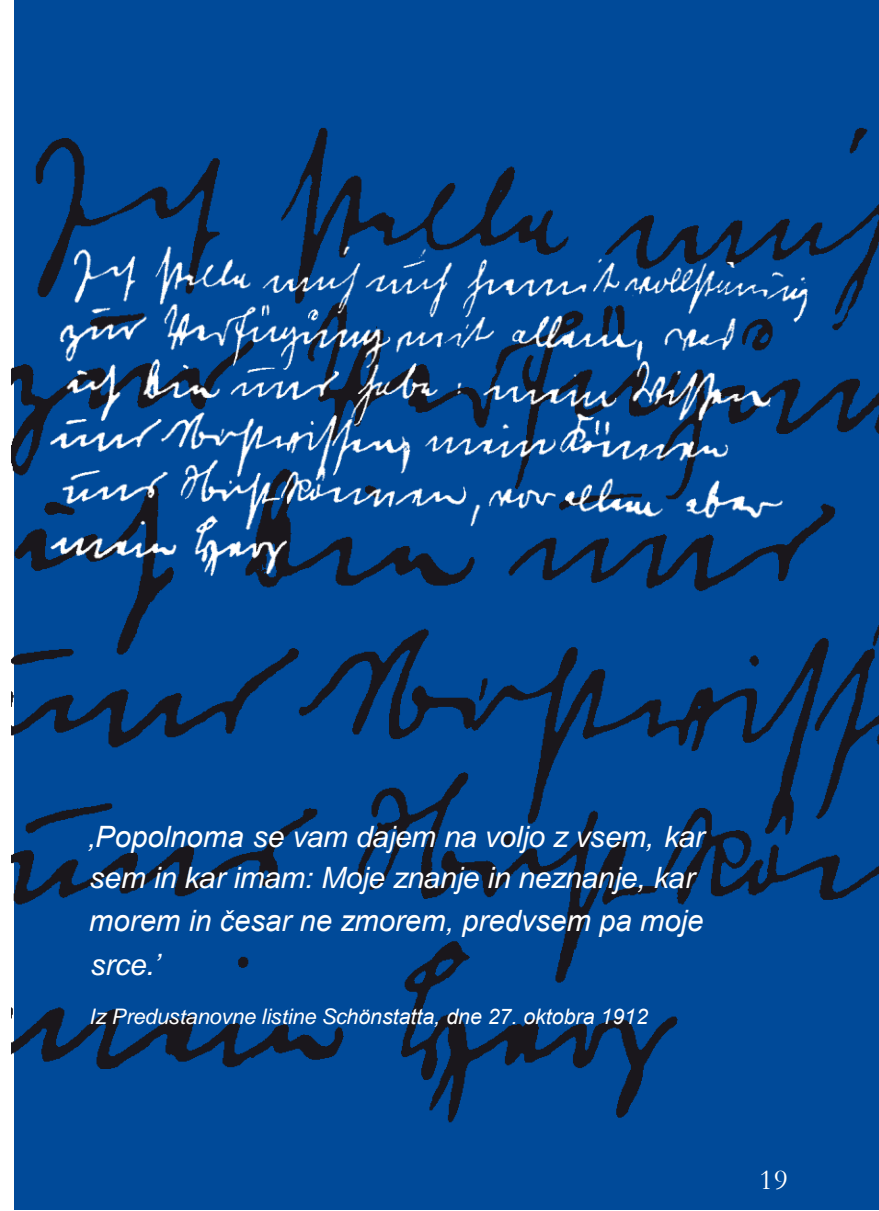 Ich stelle mich
Ich stelle mich euch hiermit vollständig
zur Verfügung mit allem, was
ich bin und habe: mein Wissen
und Nichtwissen, mein Können
und Nichtkönnen, vor allem aber
mein Herz
zur Verfügun
ich bin und
und Nichtwiss
und Nichtkön
mein Herz
‚Popolnoma se vam dajem na voljo z vsem, kar
sem in kar imam: Moje znanje in neznanje, kar
morem in česar ne zmorem, predvsem pa moje
srce.’
Iz Predustanovne listine Schönstatta, dne 27. oktobra 1912
19